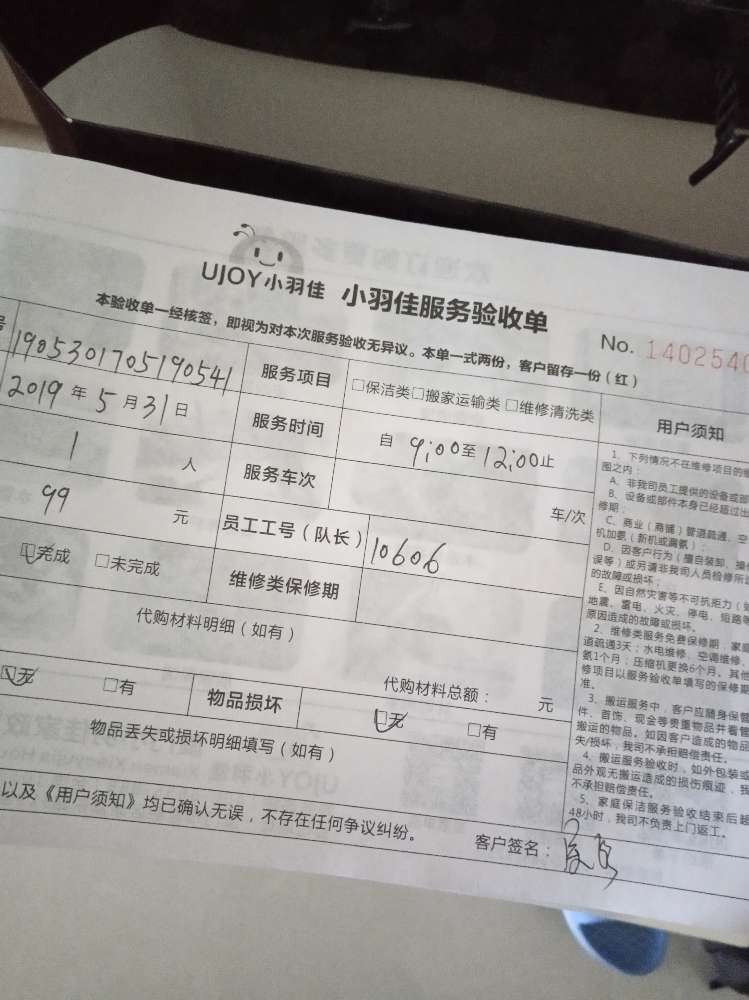 UJOY小羽佳 小羽佳服务验收单
No. 1402540
本验收单一经核签，即视为对本次服务验收无异议。本单一式两份，客户留存一份（红）
号 1905301705190541 服务项目 □保洁类□搬家运输类□维修清洗类
2019年5月31日 服务时间 自 9:00至12:00止
1 人 服务车次 车/次
99 元 员工工号（队长） 10606
☑完成 □未完成 维修类保修期
代购材料明细（如有）
代购材料总额： 元
☑无 □有 物品损坏 ☑无 □有
物品丢失或损坏明细填写（如有）
以及《用户须知》均已确认无误，不存在任何争议纠纷。
客户签名：
用户须知
1、下列情况不在维修项目的维
围之内：
A、非我司员工提供的设备或部
B、设备或部件本身已经超过出
修期；
C、商业（商铺）管道疏通、空
机加氨（新机或漏氨）；
D、因客户行为（擅自装卸、操
误等）或另请非我司人员检修所
的故障或损坏；
E、因自然灾害等不可抗拒力（
地震、雷电、火灾、停电、短路等
原因造成的故障或损坏。
2、维修类服务免费保修期：家庭
道疏通3天；水电维修、空调维修、
氨1个月；压缩机更换6个月。其他
修项目以服务验收单填写的保修期
准。
3、搬运服务中，客户应随身保管
件、首饰、现金等贵重物品并看管
搬运的物品。如因客户造成的物品
失/损坏，我司不承担赔偿责任。
4、搬运服务验收时，如外包装或
品外观无搬运造成的损伤痕迹，我
不承担赔偿责任。
5、家庭保洁服务验收结束后超
48小时，我司不负责上门返工。